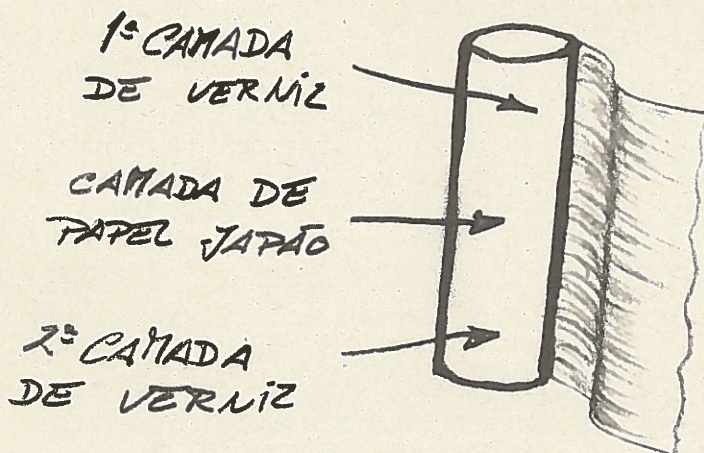 1ª CAMADA
DE VERNIZ
CAMADA DE
PAPEL JAPÃO
2ª CAMADA
DE VERNIZ